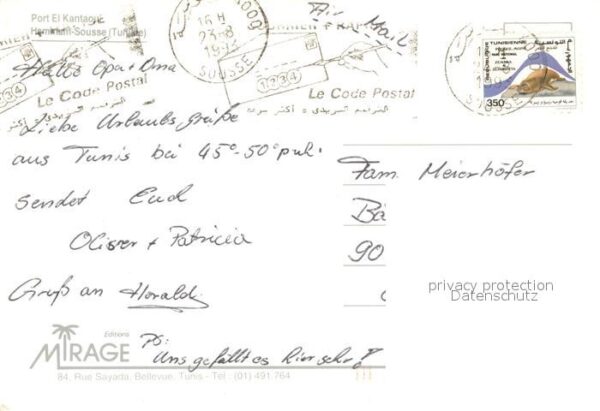 Port El Kantaoui
Hammam-Sousse (Tunisie)
16 H
23-8
1993
SOUSSE
Le Code Postal
Le Code Postal
1234
1234
Air Mail
REPUBLIQUE TUNISIENNE
350
Hallo Opa + Oma
Liebe Urlaubsgrüße
aus Tunis bei 45°-50° plu.
sendet Euch
Oliver + Patricia
Gruß an Harald
Fam. Meierhöfer
Bä
90
privacy protection
Datenschutz
PS:
Uns gefällt es hier sehr!
Editions
MIRAGE
84, Rue Sayada, Bellevue, Tunis - Tel : (01) 491 764